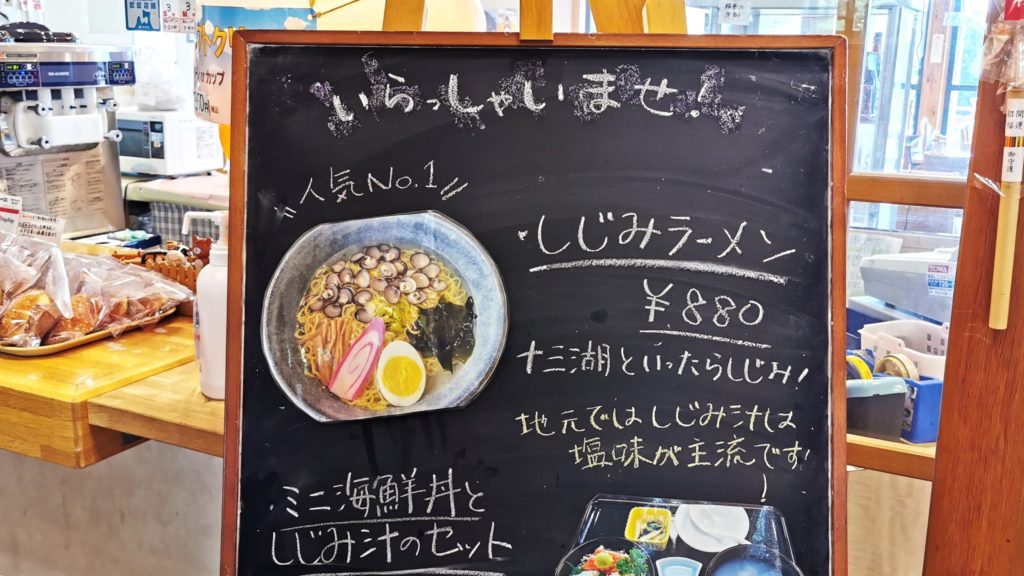 いらっしゃいませ!
人気No.1
・しじみラーメン
¥880
十三湖といったらしじみ!
地元ではしじみ汁は
塩味が主流です!
・ミニ海鮮丼と
しじみ汁のセット
開運
御守護